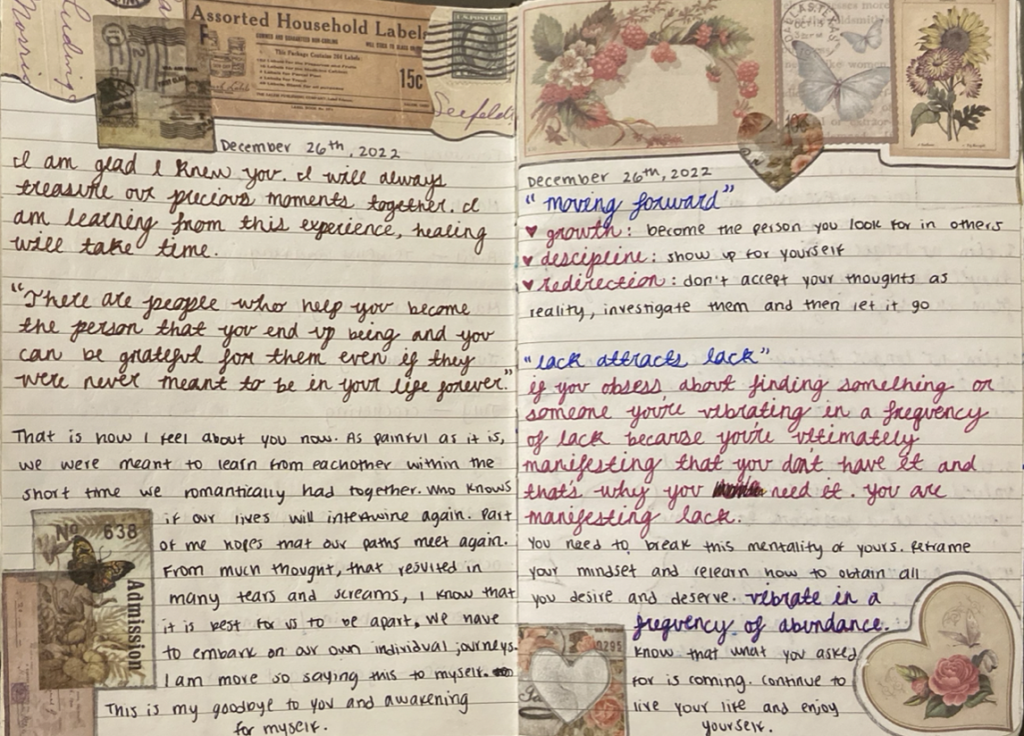 Assorted Household Labels
This Package Contains 204 Labels
15c
U.S. POSTAGE
Seefeld
December 26th, 2022
I am glad I knew you. I will always
treasure our precious moments together. I
am learning from this experience, healing
will take time.
"There are people who help you become
the person that you end up being and you
can be grateful for them even if they
were never meant to be in your life forever."
That is how I feel about you now. As painful as it is,
we were meant to learn from eachother within the
short time we romantically had together. Who knows
if our lives will intertwine again. Part
of me hopes that our paths meet again.
From much thought, that resulted in
many tears and screams, I know that
it is best for us to be apart, we have
to embark on our own individual journeys.
I am more so saying this to myself.
This is my goodbye to you and awakening
for myself.
No 638
Admission
December 26th, 2022
"moving forward"
♥ growth: become the person you look for in others
♥ descipline: show up for yourself
♥ redirection: don't accept your thoughts as
reality, investigate them and then let it go
"lack attracts lack"
if you obsess about finding something or
someone you're vibrating in a frequency
of lack because you're ultimately
manifesting that you don't have it and
that's why you need it. you are
manifesting lack.
You need to break this mentality of yours. Reframe
your mindset and relearn how to obtain all
you desire and deserve. vibrate in a
frequency of abundance.
Know that what you asked
for is coming. Continue to
live your life and enjoy
yourself.
0295